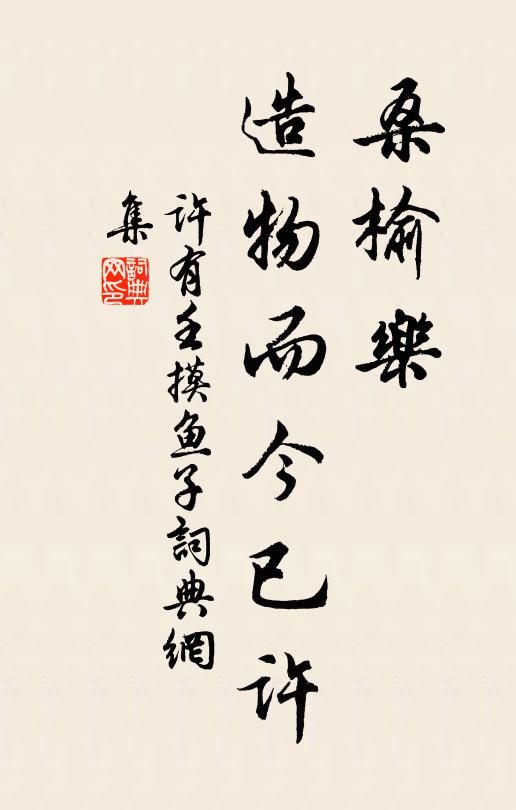 桑榆樂
造物而今已許
許有壬摸鱼子詞典網
集
詞典网印